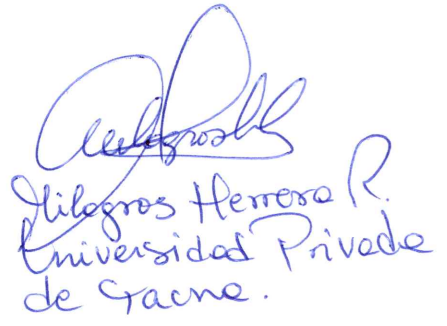 Milagros Herrera R.
Universidad Privada
de Tacna.